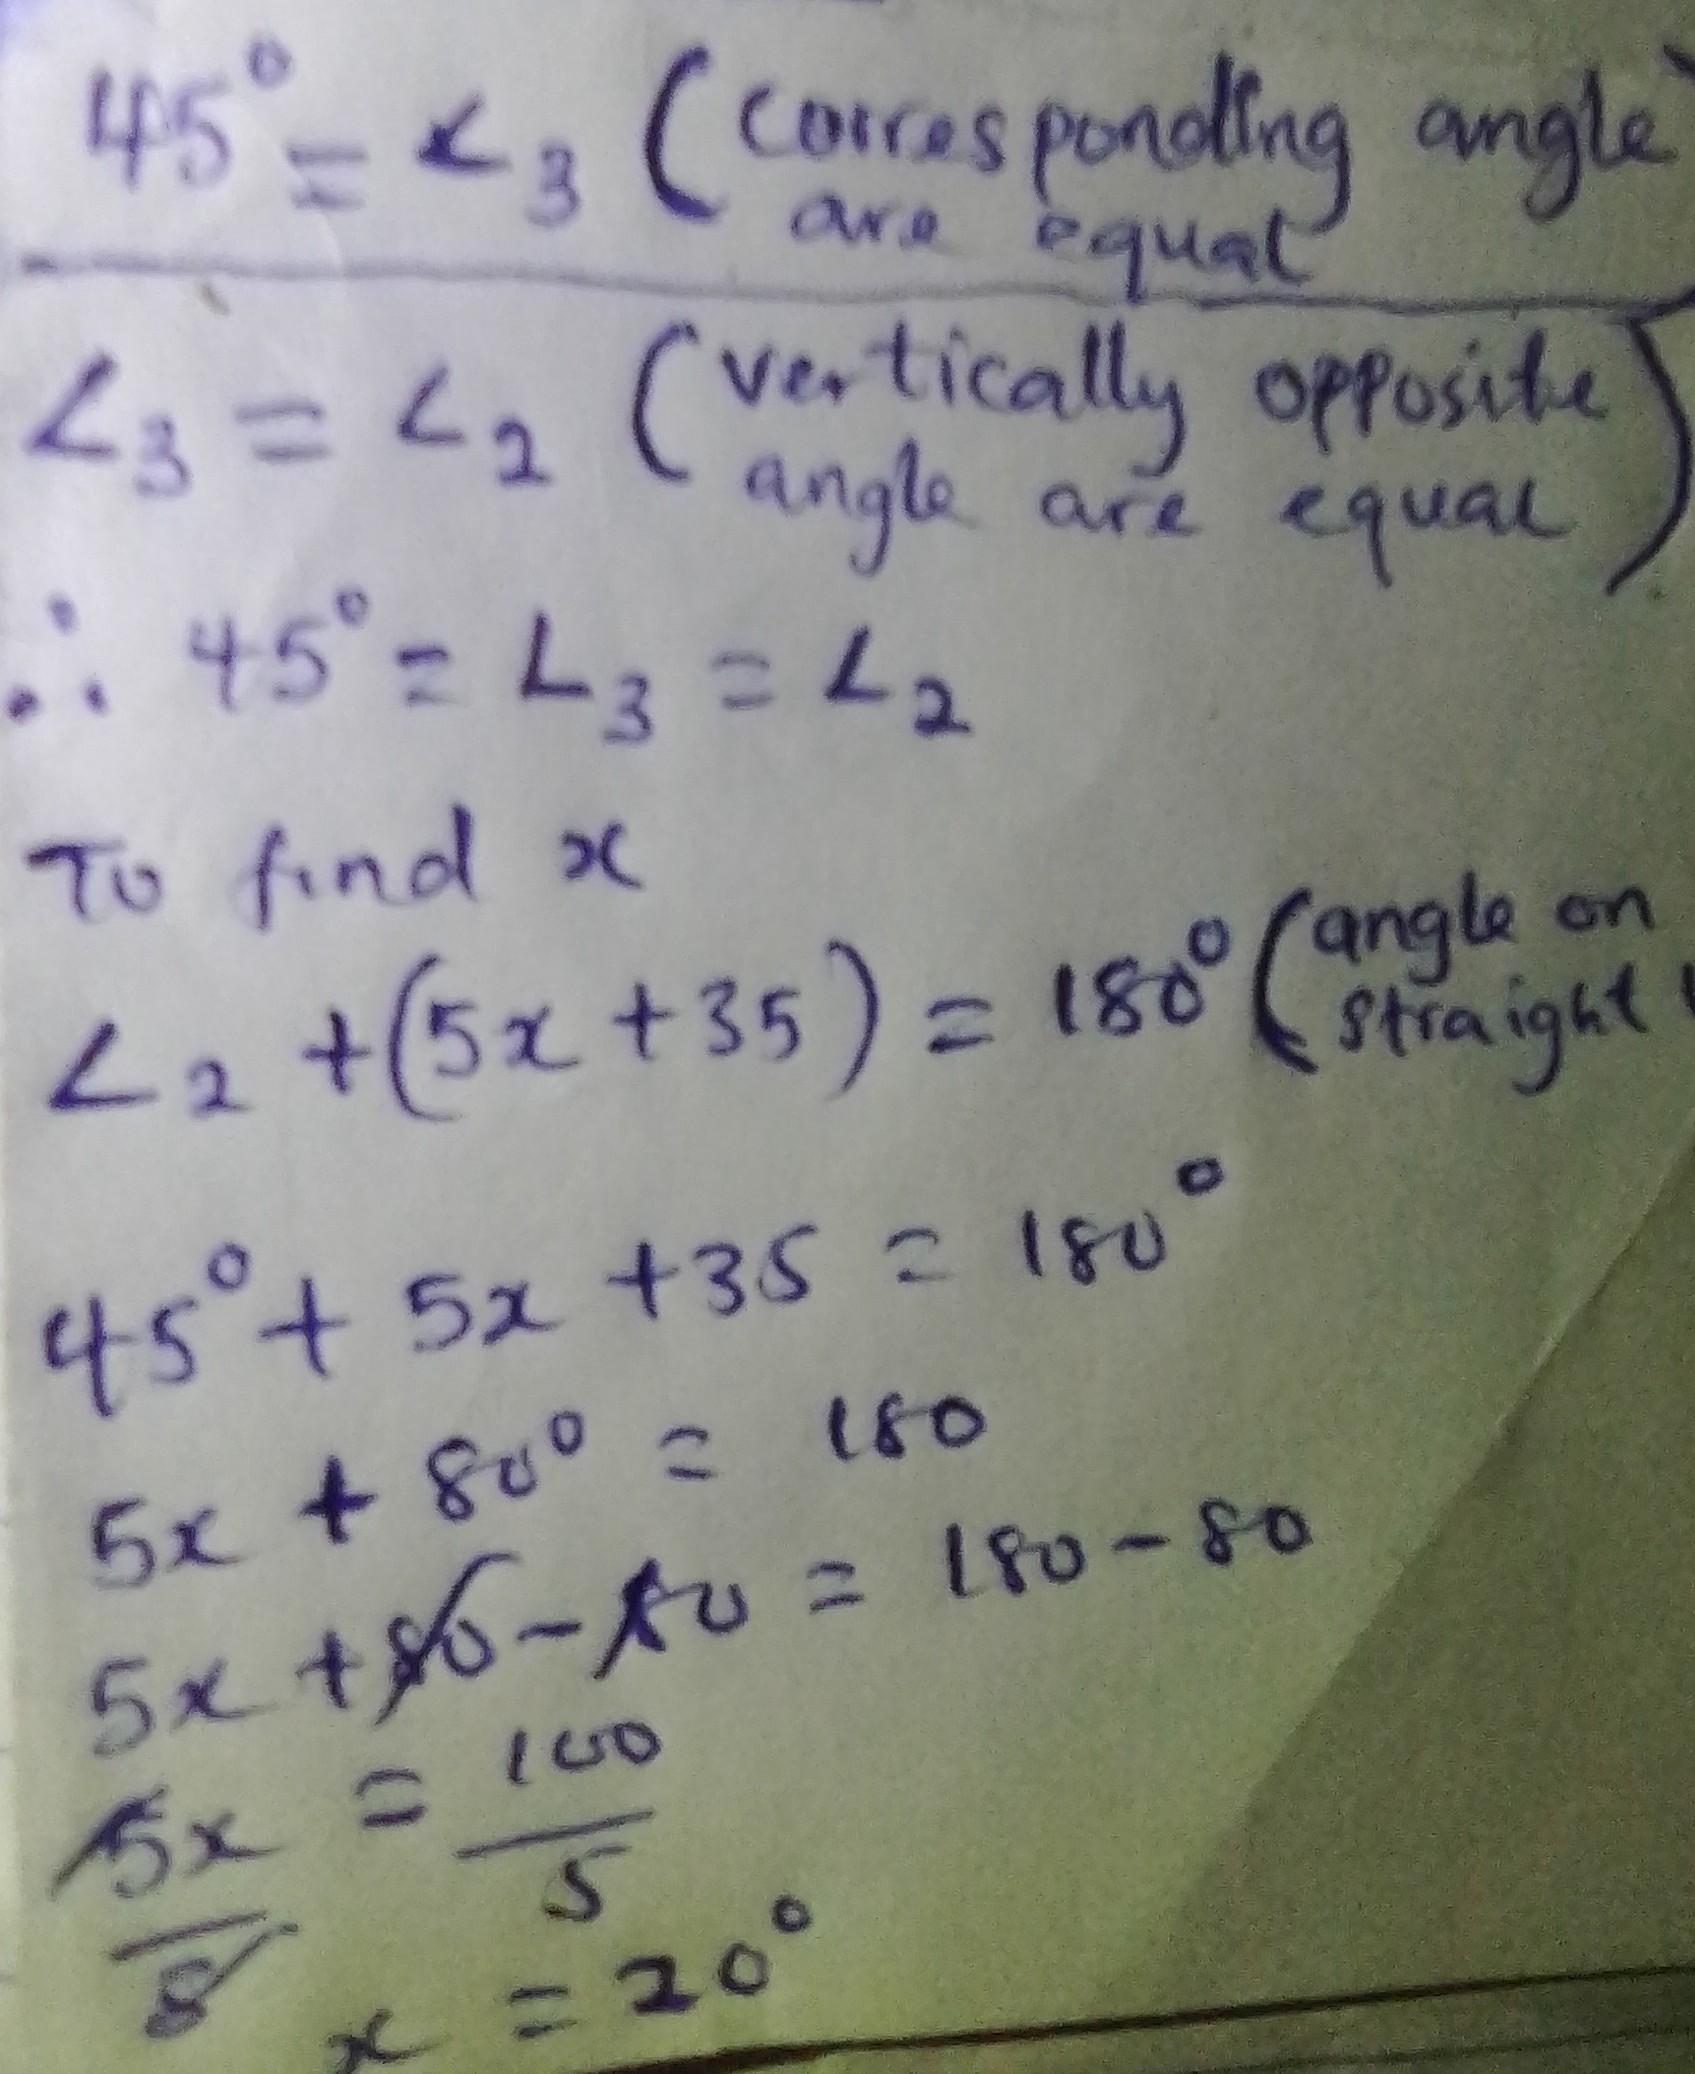 45° = ∠3 (corresponding angle
are equal)
∠3 = ∠2 (vertically opposite
angle are equal)
∴ 45° = ∠3 = ∠2
To find x
∠2 + (5x + 35) = 180° (angle on
straight
45° + 5x + 35 = 180°
5x + 80° = 180
5x + 80 - 80 = 180 - 80
5x/5 = 100/5
x = 20°